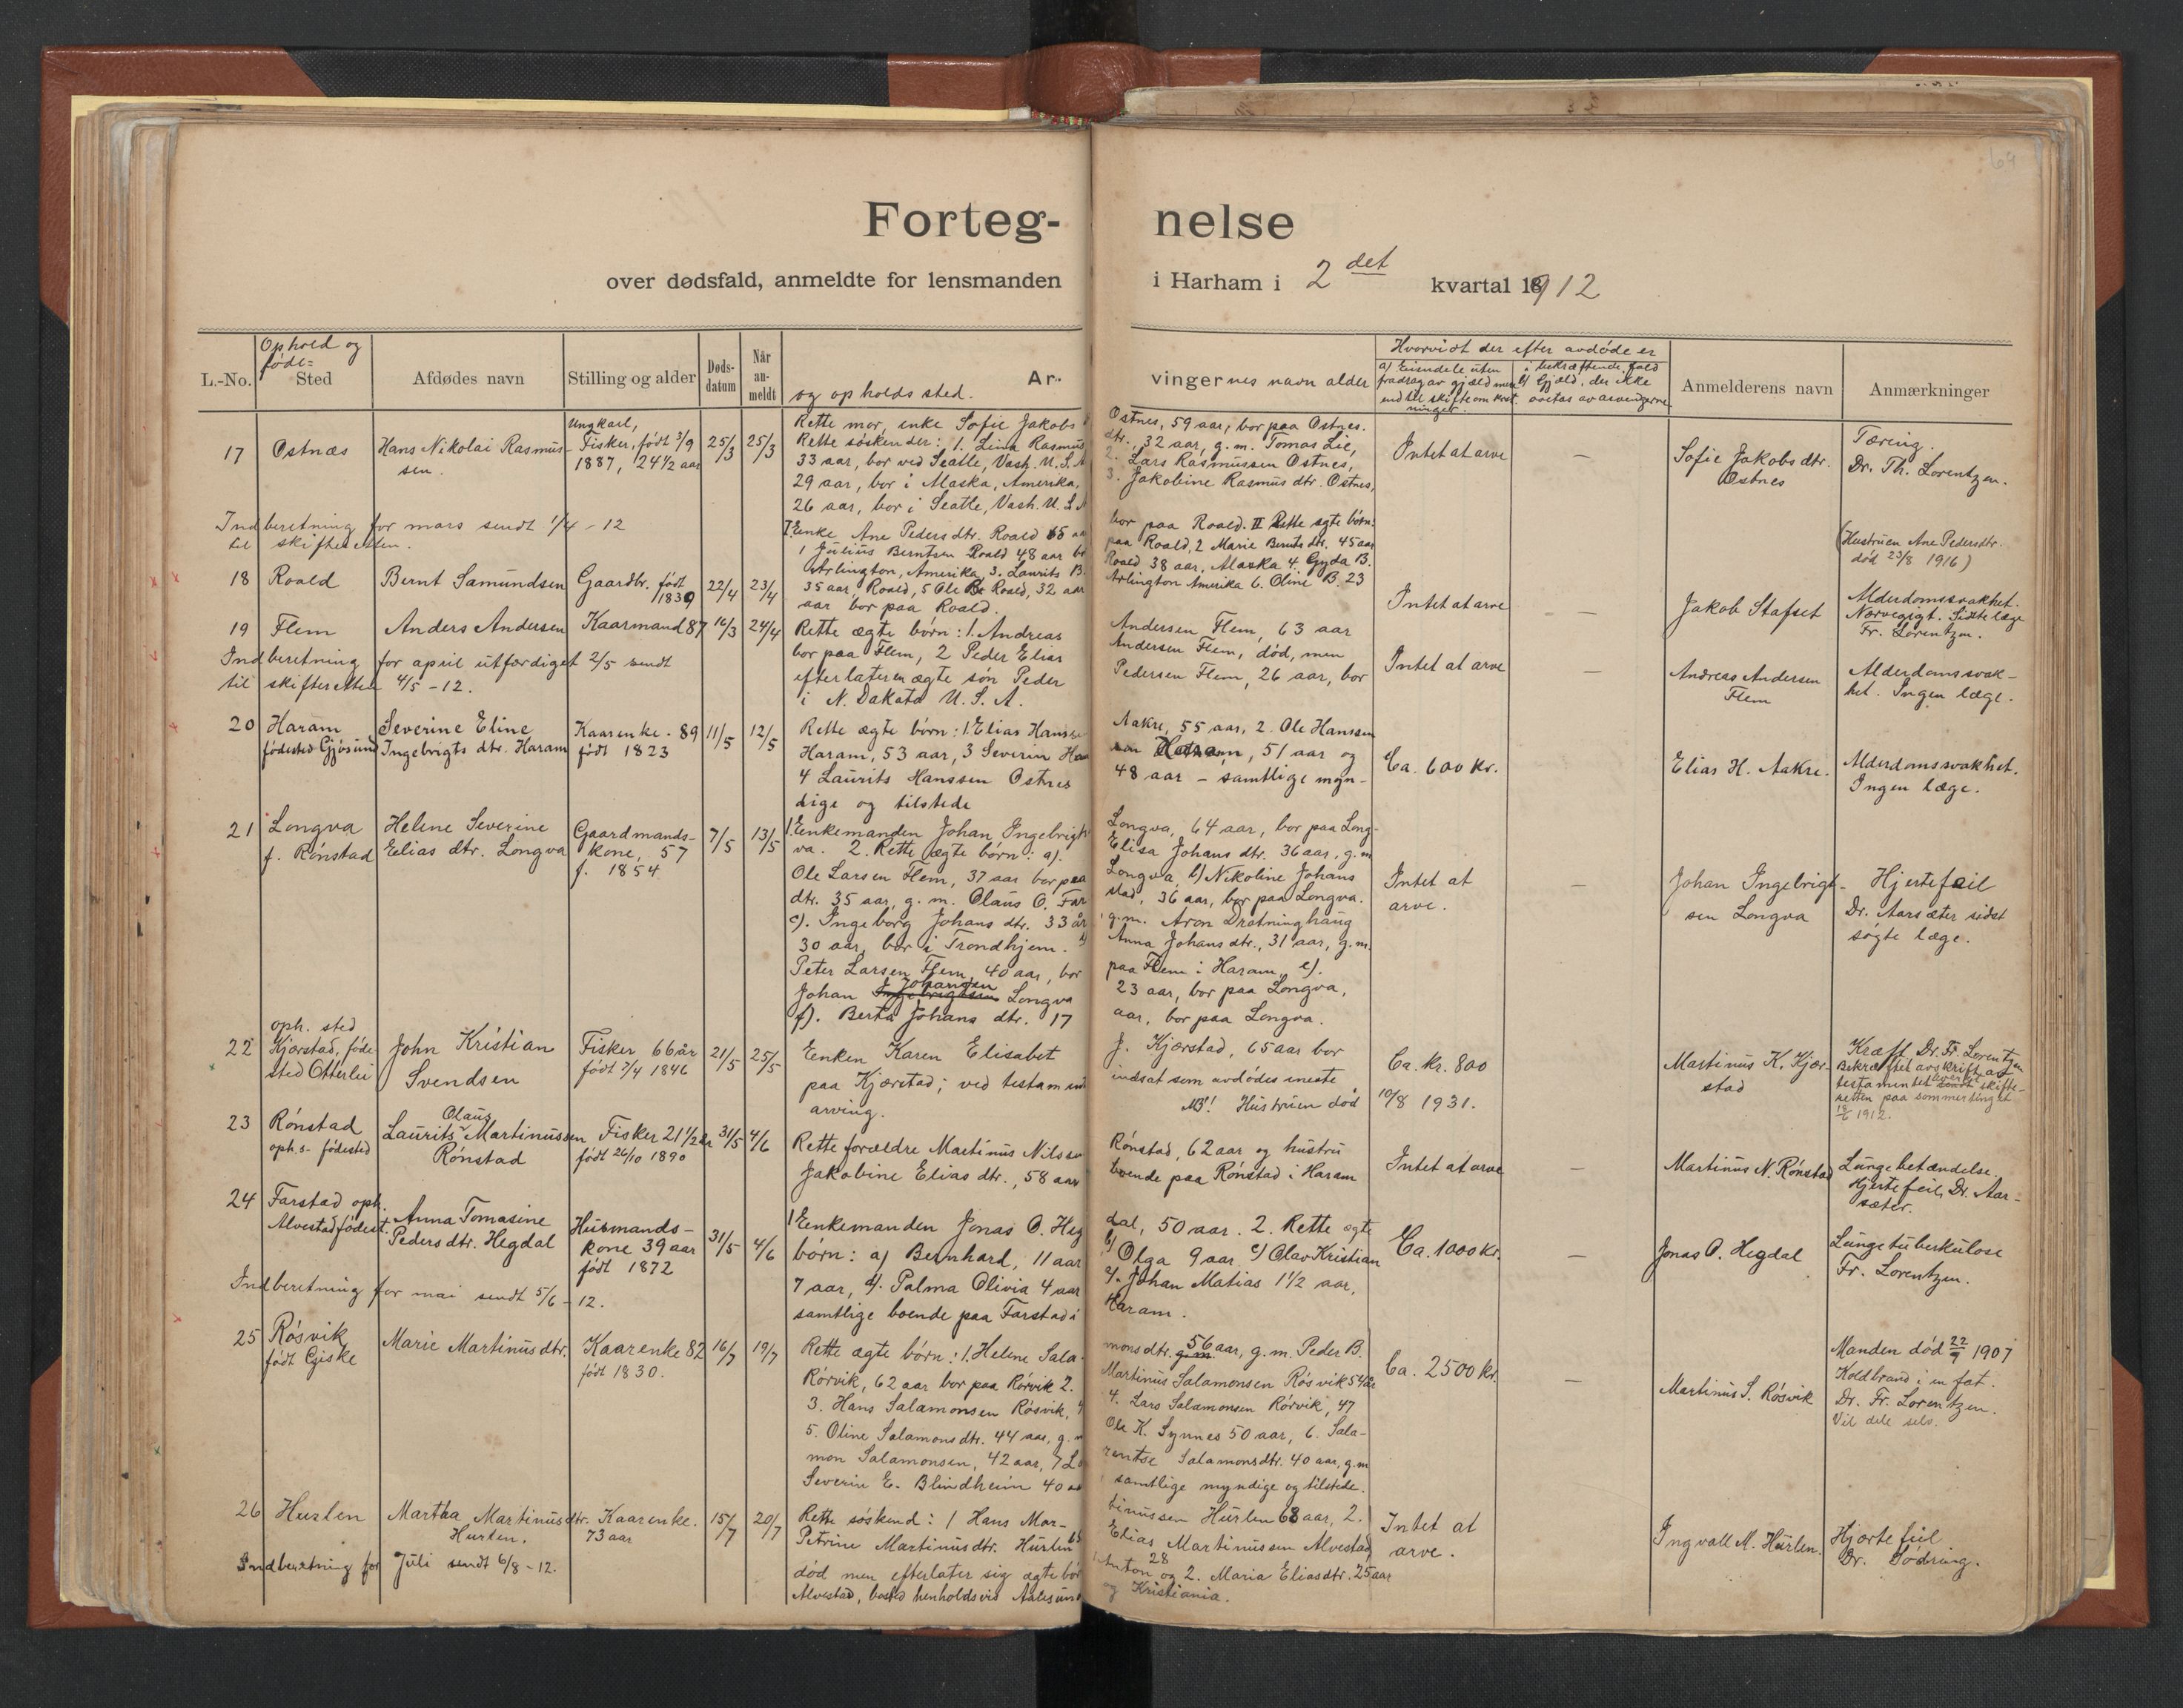 64
Forteg- nelse
over dødsfald, anmeldte for lensmanden i Harham i 2det kvartal 1912
L.-No.
Ophold og føde-Sted
Afdødes navn
Stilling og alder
Døds-datum
Når an-meldt
Ar- vingernes navn alder
og opholdssted.
Hvorvidt der efter avdøde er
a) Eiendele uten fradrag av gjæld
i bekræftende fald b) Gjæld, der ikke overtas av arvingerne
Anmelderens navn
Anmærkninger
17
Østnæs
Hans Nikolai Rasmus-
sen.
Ungkarl,
Fisker, født 3/9
1887, 24 1/2 aar
25/3
25/3
Rette mor, enke Sofie Jakobs
Østnes, 59 aar, bor paa Østnes.
Rette søskender: 1. Lina Rasmus
dtr., 32 aar, g. m. Tomas Lie,
33 aar, bor ved Seatle, Vash. U.S.A
2. Lars Rasmussen Østnes,
29 aar, bor i Alaska, Amerika,
3. Jakobine Rasmus dtr. Østnes,
26 aar, bor i Seatle, Vash. U.S.A
Intet at arve
—
Sofie Jakobsdtr.
Østnes
Tæring.
Dr. Th. Lorentzen.
Indberetning for mars sendt 1/4 - 12
til skifteretten.
18
Roald
Bernt Samundsen
Gaardbr. født
1839
22/4
23/4
I Enke Ane Pedersdtr. Roald 65 aar
bor paa Roald. II Rette ægte børn:
1 Julius Berntsen Roald 48 aar bor
paa Roald, 2 Marie Bernts dtr. 45 aar
Arlington, Amerika, 3. Laurits B.
Roald 38 aar, Alaska 4. Gyda B.
35 aar, Roald, 5 Ole B. Roald, 32 aar
Arlington Amerika 6. Oline B. 23
aar bor paa Roald.
Intet at arve
—
Jakob Stafset
(Hustruen Ane Pedersdtr.
død 23/8 1916)
Alderdomssvakhet.
Nervegigt. Sidste læge
Fr. Lorentzen.
19
Flem
Anders Andersen
Kaarmand 87
16/3
24/4
Rette ægte børn: 1. Andreas
Andersen Flem, 63 aar
bor paa Flem, 2 Peder Elias
Andersen Flem, død, men
efterlater en ægte søn Peder
Pedersen Flem, 26 aar, bor
i N. Dakata U. S. A.
Intet at arve
—
Andreas Andersen
Flem
Alderdomssvak-
het. Ingen læge.
Indberetning for april utfærdiget 2/5 sendt
til skifteretten 4/5 - 12.
20
Haram
fødested Gjøsund
Severine Eline
Ingebrigts dtr. Haram
Kaarenke - 89
født 1823
11/5
12/5
Rette ægte børn: 1. Elias Hanssen
Aakre, 55 aar, 2. Ole Hanssen
Haram, 53 aar, 3 Severin Han
sen Haram, 51 aar og
4 Laurits Hanssen Østnes
48 aar - samtlige myn-
dige og tilstede
Ca. 600 kr.
Elias H. Aakre.
Alderdomssvakhet.
Ingen læge.
21
Longva
f. Rønstad
Helene Severine
Elias dtr. Longva
Gaardmands-
kone, 57
f. 1854
7/5
13/5
1. Enkemanden Johan Ingebrigts
Longva, 64 aar, bor paa Long-
va. 2. Rette ægte børn: a).
Elisa Johans dtr. 36 aar, g. m
Ole Larsen Flem, 37 aar bor paa
Longva, b) Nikoline Johans
dtr. 35 aar, g. m. Olaus O. Far
stad, 36 aar, bor paa Longva.
c). Ingeborg Johans dtr. 33 år
g. m. Aron Dratninghaug
30 aar, bor i Trondhjem. d)
Anna Johans dtr., 31 aar, g. m.
Peter Larsen Flem, 40 aar, bor
paa Flem i Haram, e).
Johan Johansen Longva
23 aar, bor paa Longva,
f). Berta Johans dtr. 17
aar, bor paa Longva.
Intet at
arve.
—
Johan Ingebrigt-
sen Longva
Hjertefeil
Dr. Aarsæter sidst
søgte læge.
22
oph. sted
Kjærstad, føde
sted Otterlei
John Kristian
Svendsen
Fisker 66 år
født 2/4 1846
21/5
25/5
Enken Karen Elisabet
J. Kjærstad, 65 aar bor
paa Kjærstad; ved testament
indsat som avdødes eneste
arving.
NB! Hustruen død 10/8 1931.
Ca. kr. 800
Martinus K. Kjær-
stad
Kræft, Dr. Fr. Lorentzen
Bekræftet avskrift av
testamentet levert skifte-
retten paa sommertinget
18/6 1912.
23
Rønstad
oph. s- fødested
Laurits Olaus Martinussen
Rønstad
Fisker 21 1/2 år
født 26/10 1890
31/5
4/6
Rette forældre Martinus Nilssen
Rønstad, 62 aar og hustru
Jakobine Elias dtr., 58 aar
boende paa Rønstad i Haram
Intet at arve
—
Martinus N. Rønstad
Lungebetændelse,
Hjertefeil, Dr. Aar-
sæter.
24
Farstad oph.
Alvestad fødest.
Anna Tomasine
Pedersdtr. Hegdal
Husmands-
kone 39 aar
født 1872
31/5
4/6
1 Enkemanden Jonas O. Heg
dal, 50 aar. 2. Rette ægte
børn: a) Bernhard, 11 aar
b) Olga 9 aar c) Olav Kristian
7 aar, d). Palma Olivia 4 aar
e). Johan Matias 1 1/2 aar,
samtlige boende paa Farstad i
Haram.
Ca. 1000 kr.
—
Jonas O. Hegdal
Lungetuberkulose
Fr. Lorentzen.
Indberetning for mai sendt 5/6 - 12.
25
Røsvik
født Giske
Marie Martinusdtr.
Kaarenke 82
født 1830.
16/7
19/7
Rette ægte børn: 1. Helene Sala-
monsdtr. 56 aar, g. m. Peder B.
Rørvik, 62 aar bor paa Rørvik 2.
Martinus Salamonsen Røsvik 54 år
3. Hans Salamonsen Røsvik, 4
4. Lars Salamonsen Rørvik, 47
5. Oline Salamonsdtr. 44 aar, g. m
Ole K. Synnes 50 aar, 6. Sala-
mon Salamonsen, 42 aar, 7 La
rentse Salamonsdtr. 40 aar, g. m
Severin E. Blindheim 40 aar
samtlige myndige og tilstede.
Ca. 2500 kr.
—
Martinus S. Røsvik
Manden død 22/9 1907
Koldbrand i en fot.
Dr. Fr. Lorentzen.
Vil dele selv.
26
Hurlen
Martha Martinusdtr.
Hurlen.
Kaarenke.
73 aar
15/7
20/7
Rette søskend: 1 Hans Mar-
tinussen Hurlen 68 aar, 2.
Petrine Martinusdtr. Hurlen 65
Elias Martinussen Alvestad
død men efterlater sig ægte bør
Anton 28 og 2. Maria Eliasdtr. 25 aar
Alvestad, bosted henholdsvis Aalesund
og Kristiania.
Intet at
arve.
Ingvall M. Hurlen.
Hjertefeil
Dr. Dødring.
Indberetning for Juli sendt 6/8 - 12.